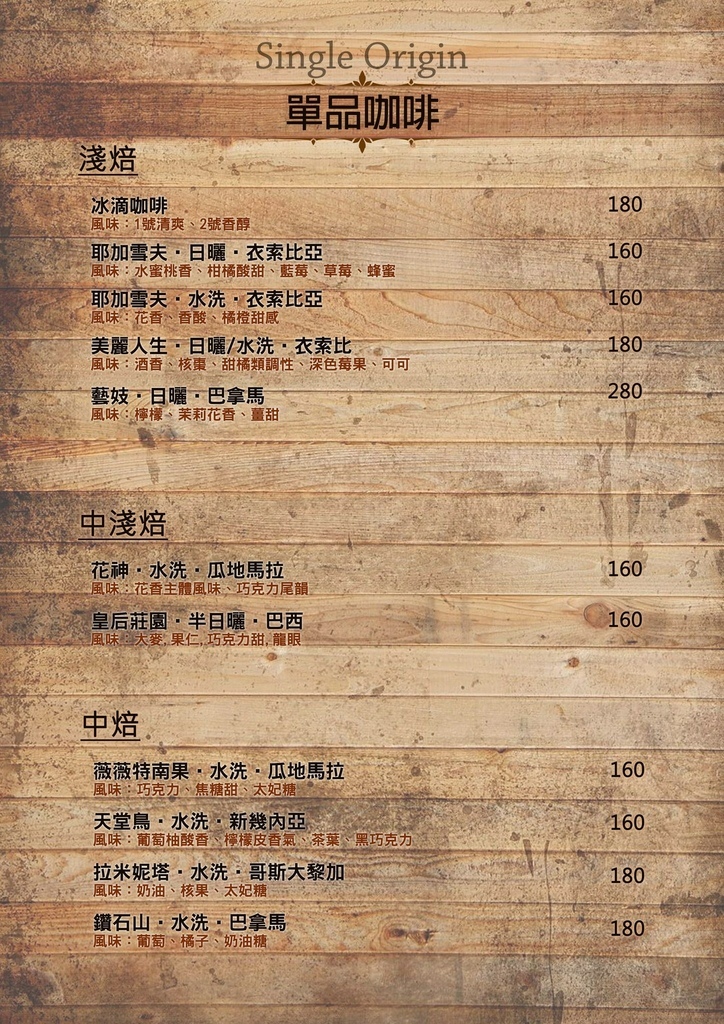 Single Origin
單品咖啡
淺焙
冰滴咖啡 180
風味：1號清爽、2號香醇
耶加雪夫‧日曬‧衣索比亞 160
風味：水蜜桃香、柑橘酸甜、藍莓、草莓、蜂蜜
耶加雪夫‧水洗‧衣索比亞 160
風味：花香、香酸、橘橙甜感
美麗人生‧日曬/水洗‧衣索比 180
風味：酒香、核棗、甜橘類調性、深色莓果、可可
藝妓‧日曬‧巴拿馬 280
風味：檸檬、茉莉花香、薑甜
中淺焙
花神‧水洗‧瓜地馬拉 160
風味：花香主體風味、巧克力尾韻
皇后莊園‧半日曬‧巴西 160
風味：大麥,果仁,巧克力甜,龍眼
中焙
薇薇特南果‧水洗‧瓜地馬拉 160
風味：巧克力、焦糖甜、太妃糖
天堂鳥‧水洗‧新幾內亞 160
風味：葡萄柚酸香、檸檬皮香氣、茶葉、黑巧克力
拉米妮塔‧水洗‧哥斯大黎加 180
風味：奶油、核果、太妃糖
鑽石山‧水洗‧巴拿馬 180
風味：葡萄、橘子、奶油糖